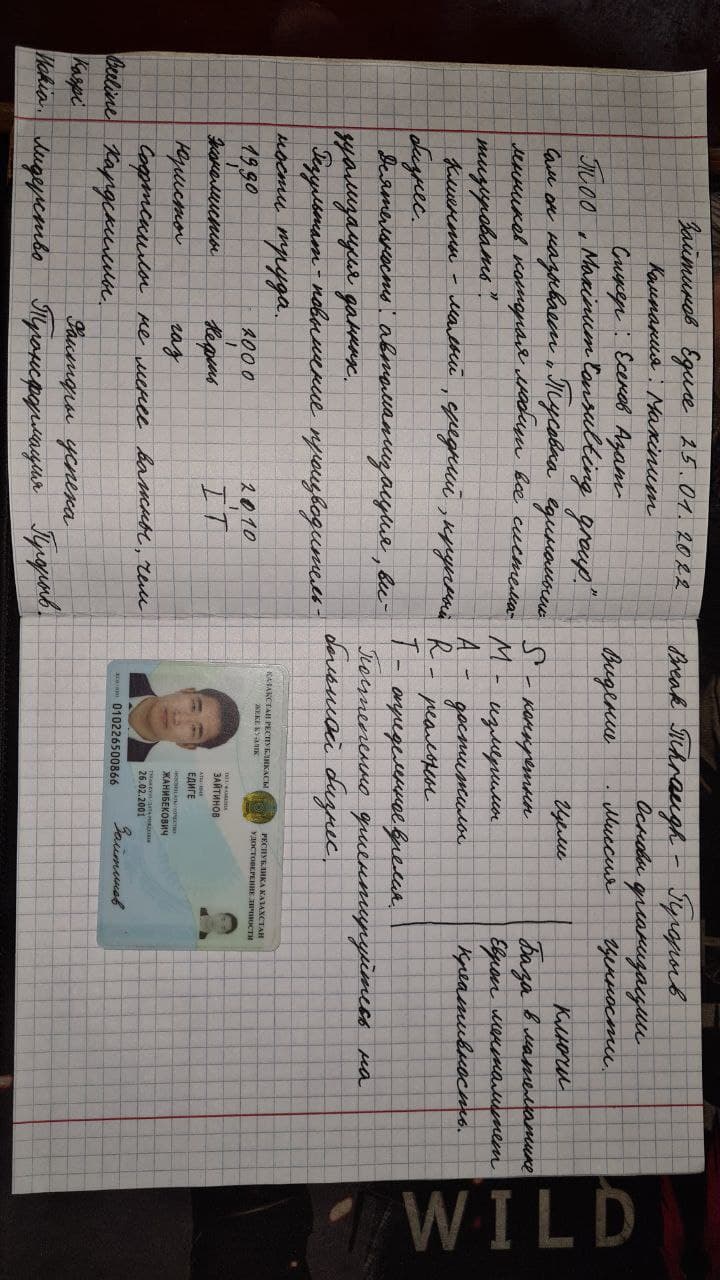 Зайтинов Едиге 25.01.2022
Компания: Maxinum
Спикер: Есенов Азат
ТОО „Maxinum Consulting group."
Сам он называет „Тусовка единомыш
ленников которая любит все система-
тизировать".
Клиенты - малый, средний, крупный
бизнес.
Деятельность: автоматизация, ви-
зуализация данных.
Результат - повышение производитель-
ности труда.
1990 2000 2010
Экономисты Нефть IT
Юристы газ
Софтскилы не менее важны, чем
Beeline Хардскиллы.
Kaspi Факторы успеха
Nokia. Лидерство Трансформация Прорыв.
Break Through - Прорыв
Основы организации
Видение . Миссия Ценности.
Цели Ключи
S - конкретны База в математике
M - измеримы Европ менталитет
A - достижимы Креативность.
R - реальны
T - определенное время.
Постепенно ориентируйтесь на
большой бизнес.
ҚАЗАҚСТАН РЕСПУБЛИКАСЫ РЕСПУБЛИКА КАЗАХСТАН
ЖЕКЕ КУӘЛІК УДОСТОВЕРЕНИЕ ЛИЧНОСТИ
ТЕГІ / ФАМИЛИЯ
ЗАЙТИНОВ
АТЫ / ИМЯ
ЕДИГЕ
ӘКЕСІНІҢ АТЫ / ОТЧЕСТВО
ЖАНИБЕКОВИЧ
ТУҒАН КҮНІ / ДАТА РОЖДЕНИЯ
26.02.2001
ЖСН / ИИН 010226500866
Зайтинов
WILD